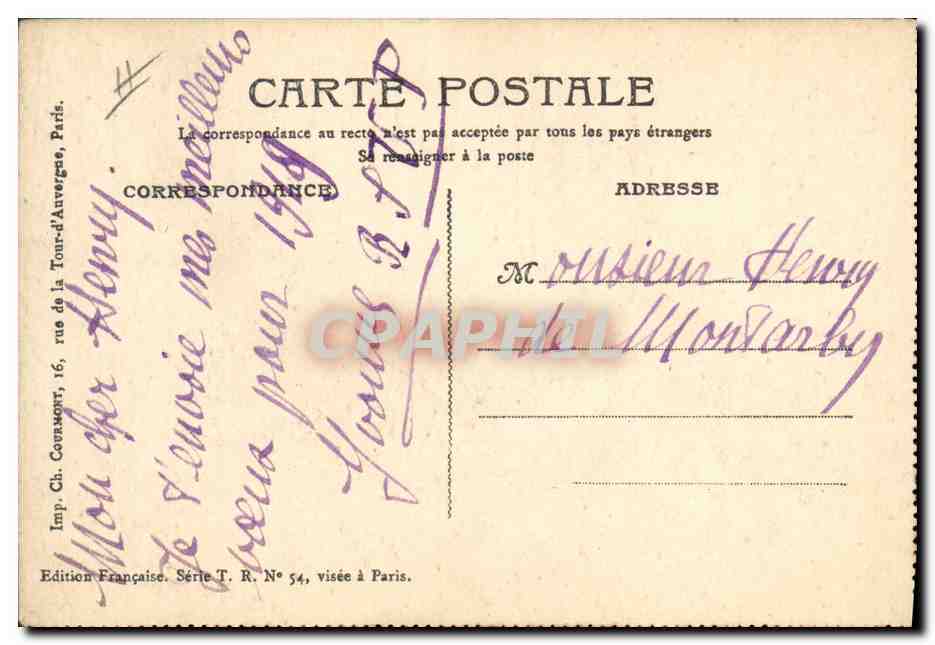 CARTE POSTALE
La correspondance au recto n'est pas acceptée par tous les pays étrangers
Se renseigner à la poste
CORRESPONDANCE
ADRESSE
Mon cher Henry.
Je t'envoie mes meilleurs
vœux pour 1918
Yvonne
R S V P
Monsieur Henry
de Montarby
Imp. Ch. COURMONT, 16, rue de la Tour-d'Auvergne, Paris.
Edition Française. Série T. R. N° 54, visée à Paris.
H
CPAPHIL